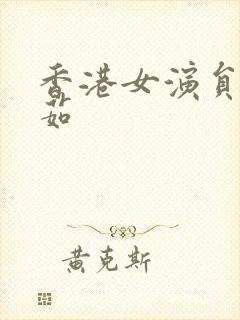 香港女演員
茹
黄克斯